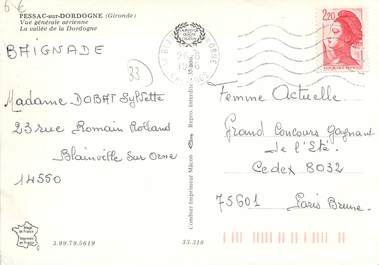 6€
PESSAC-sur-DORDOGNE (Gironde)
Vue générale aérienne
La vallée de la Dordogne
BAIGNADE
33
Madame DOBAT Sylvette
23 rue Romain Rolland
Blainville sur Orne
14550
3.99.79.5619
33.318
Combier Imprimeur Mâcon
Repro. interdite
2,20
Femme Actuelle
Grand Concours Gagnant
de l'Eté
Cedex 8032
75601 Paris Brune